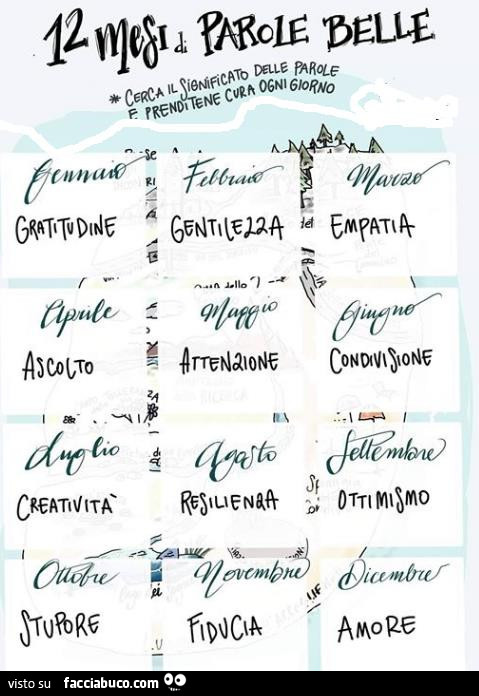 12 MESI di PAROLE BELLE
* CERCA IL SIGNIFICATO DELLE PAROLE
E PRENDITENE CURA OGNI GIORNO
Gennaio
GRATITUDINE
Febbraio
GENTILEZZA
Marzo
EMPATIA
Aprile
ASCOLTO
Maggio
ATTENZIONE
Giugno
CONDIVISIONE
Luglio
CREATIVITÀ
Agosto
RESILIENZA
Settembre
OTTIMISMO
Ottobre
STUPORE
Novembre
FIDUCIA
Dicembre
AMORE
visto su facciabuco.com